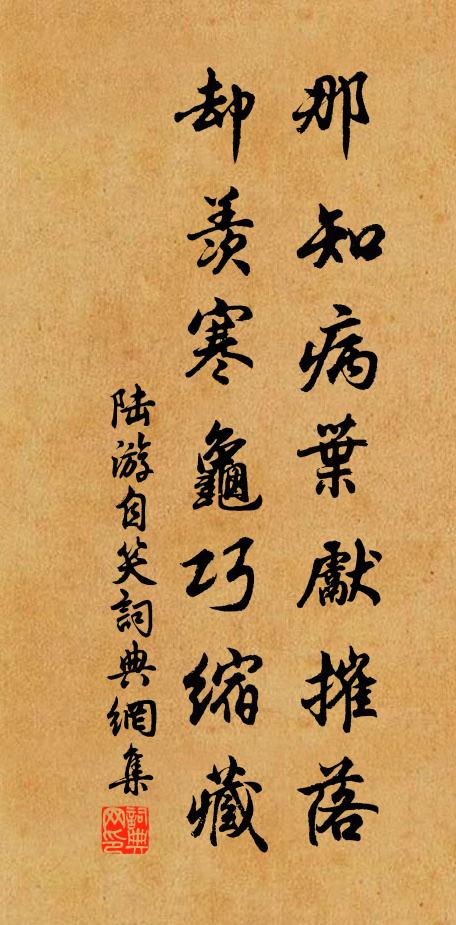 那知病葉獻摧落
却羨寒龜巧縮藏
陆游自笑詞典網集
詞典网印